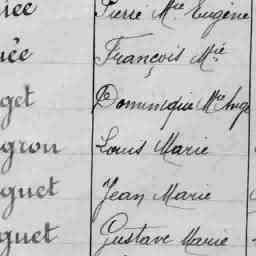 Pierre Mie Eugène
François Mie
get Dominique Mie Ange
gron Louis Marie
guet Jean Marie
guet Gustave Marie